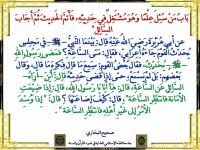 بَابُ مَنْ سُئِلَ عِلْمًا وَهُوَ مُشْتَغِلٌ فِي حَدِيثِهِ، فَأَتَمَّ الْحَدِيثَ ثُمَّ أَجَابَ
السَّائِلَ
عَنْ أَبِي هُرَيْرَةَ رَضِيَ اللَّهُ عَنْهُ قَالَ: بَيْنَمَا النَّبِيُّ ﷺ فِي مَجْلِسٍ
يُحَدِّثُ الْقَوْمَ جَاءَهُ أَعْرَابِيٌّ، فَقَالَ: مَتَى السَّاعَةُ؟ فَمَضَى رَسُولُ اللَّهِ
ﷺ يُحَدِّثُ، فَقَالَ بَعْضُ الْقَوْمِ: سَمِعَ مَا قَالَ فَكَرِهَ مَا قَالَ، وَقَالَ
بَعْضُهُمْ: بَلْ لَمْ يَسْمَعْ، حَتَّى إِذَا قَضَى حَدِيثَهُ قَالَ: أَيْنَ أُرَاهُ
السَّائِلُ عَنِ السَّاعَةِ، قَالَ: هَا أَنَا يَا رَسُولَ اللَّهِ، قَالَ: فَإِذَا ضُيِّعَتِ
الْأَمَانَةُ فَانْتَظِرِ السَّاعَةَ، قَالَ: كَيْفَ إِضَاعَتُهَا؟ قَالَ: إِذَا وُسِّدَ
الْأَمْرُ إِلَى غَيْرِ أَهْلِهِ فَانْتَظِرِ السَّاعَةَ
صحيح البخاري